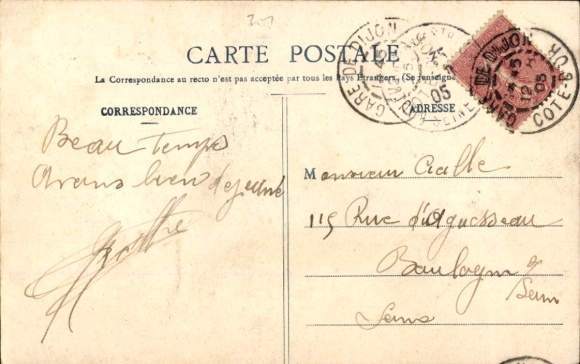 CARTE POSTALE
La Correspondance au recto n'est pas acceptée par tous les Pays Étrangers. (Se renseigner
CORRESPONDANCE
ADRESSE
GARE DE DIJON
05
GARE DE DIJON
COTE-D'OR
05
Beau temps
Avons bien dejeuné
Monsieur
115 Rue d'Aguesseau
Boulogne s/
Seine
Seine